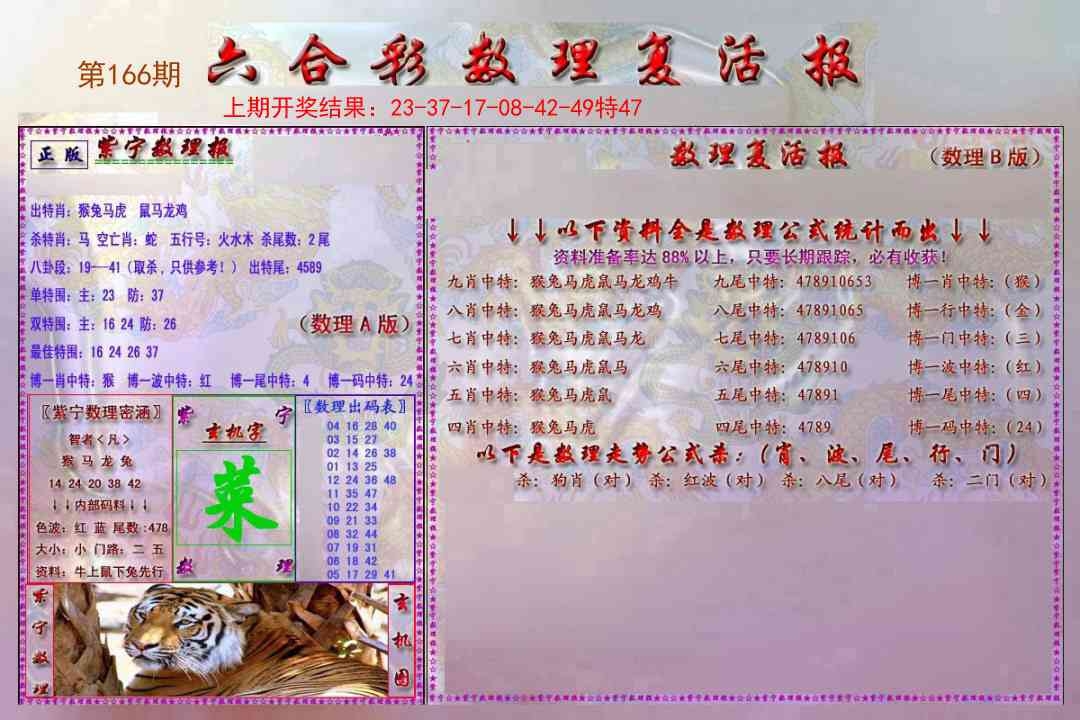 第166期
六合彩数理复活报
上期开奖结果：23-37-17-08-42-49特47
正版 紫宁数理报
出特肖：猴兔马虎 鼠马龙鸡
杀特肖：马 空亡肖：蛇 五行号：火水木 杀尾数：2尾
八卦段：19---41（取杀，只供参考！）出特尾：4589
单特围：主：23 防：37
双特围：主：16 24 防：26
（数理A版）
最佳特围：16 24 26 37
博一肖中特：猴 博一波中特：红 博一尾中特：4 博一码中特：24
〖紫宁数理密涵〗
智者<凡>
猴 马 龙 兔
14 24 20 38 42
↓↓内部码料↓↓
色波：红 蓝 尾数:478
大小：小 门路：二 五
资料：牛上鼠下兔先行
紫 宁
玄机字
菜
数 理
〖数理出码表〗
04 16 28 40
03 15 27
02 14 26 38
01 13 25
12 24 36 48
11 35 47
10 22 34
09 21 33
08 32 44
07 19 31
06 18 42
05 17 29 41
紫宁数理
玄机图
数理复活报
（数理B版）
↓↓以下资料全是数理公式统计而出↓↓
资料准备率达88%以上，只要长期跟踪，必有收获！
九肖中特：猴兔马虎鼠马龙鸡牛 九尾中特：478910653 博一肖中特：（猴）
八肖中特：猴兔马虎鼠马龙鸡 八尾中特：47891065 博一行中特：（金）
七肖中特：猴兔马虎鼠马龙 七尾中特：4789106 博一门中特：（三）
六肖中特：猴兔马虎鼠马 六尾中特：478910 博一波中特：（红）
五肖中特：猴兔马虎鼠 五尾中特：47891 博一尾中特：（四）
四肖中特：猴兔马虎 四尾中特：4789 博一码中特：（24）
以下是数理走势公式杀：（肖、波、尾、行、门）
杀：狗肖（对） 杀：红波（对） 杀：八尾（对） 杀：二门（对）